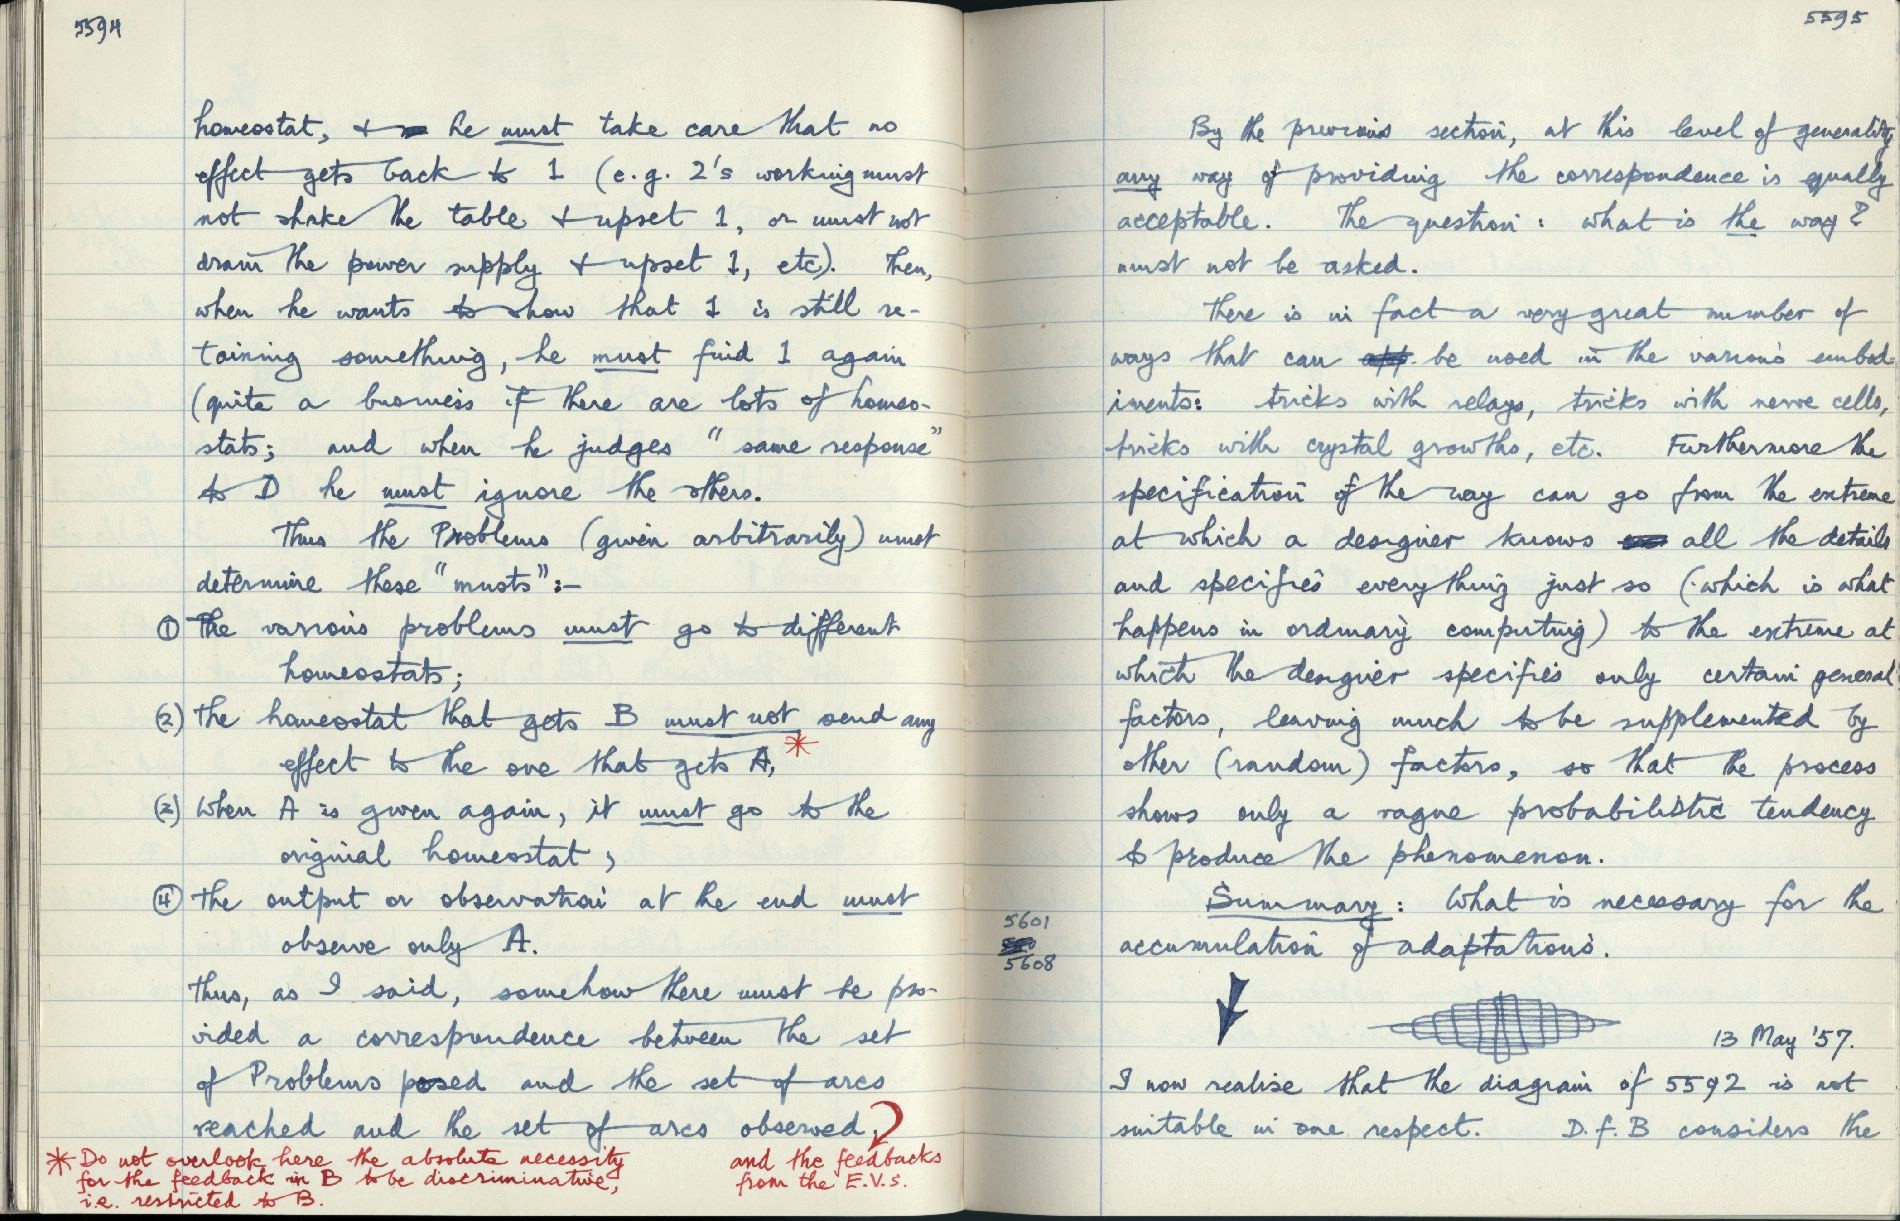 5594
homeostat, + he must take care that no
effect gets back to 1 (e.g. 2's working must
not shake the table + upset 1, or must not
drain the power supply + upset 1, etc). Then,
when he wants to show that 1 is still re-
taining something, he must find 1 again
(quite a business if there are lots of homeo-
stats; and when he judges "same response"
to D he must ignore the others.
Thus the Problems (given arbitrarily) must
determine these "musts":-
① The various problems must go to different
homeostats;
(2) The homeostat that gets B must not send any
effect to the one that gets A, *
(3) When A is given again, it must go to the
original homeostat;
④ The output or observation at the end must
observe only A.
Thus, as I said, somehow there must be pro-
vided a correspondence between the set
of Problems posed and the set of arcs
reached and the set of arcs observed.
* Do not overlook here the absolute necessity
for the feedback in B to be discriminative,
i.e. restricted to B.
and the feedbacks
from the E.V.s.
5595
By the previous section, at this level of generality
any way of providing the correspondence is equally
acceptable. The question: what is the way?
must not be asked.
There is in fact a very great number of
ways that can be used in the various embod-
iments: tricks with relays, tricks with nerve cells,
tricks with crystal growths, etc. Furthermore the
specification of the way can go from the extreme
at which a designer knows all the details
and specifies everything just so (which is what
happens in ordinary computing) to the extreme at
which the designer specifies only certain general
factors, leaving much to be supplemented by
other (random) factors, so that the process
shows only a vague probabilistic tendency
to produce the phenomenon.
Summary: What is necessary for the
accumulation of adaptations.
5601
5608
13 May '57.
I now realise that the diagram of 5592 is not
suitable in one respect. D.f.B considers the